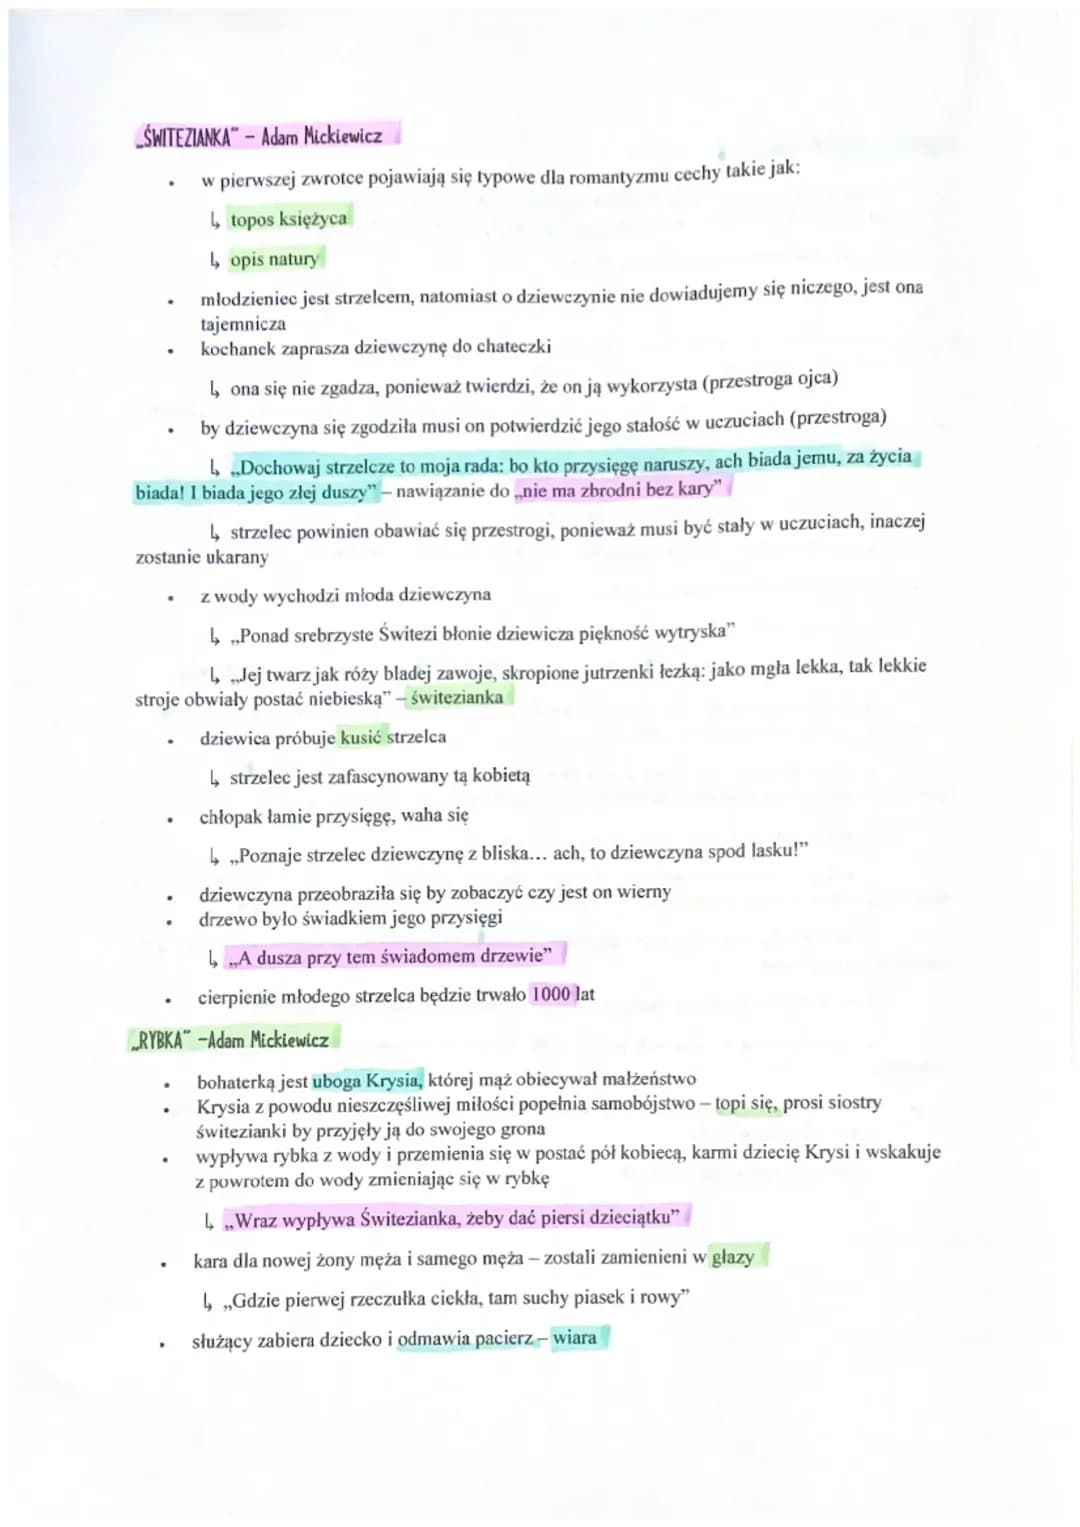 „ŚWITEZIANKA” – Adam Mickiewicz
• w pierwszej zwrotce pojawiają się typowe dla romantyzmu cechy takie jak:
↳ topos księżyca
↳ opis natury
• młodzieniec jest strzelcem, natomiast o dziewczynie nie dowiadujemy się niczego, jest ona
tajemnicza
• kochanek zaprasza dziewczynę do chateczki
↳ ona się nie zgadza, ponieważ twierdzi, że on ją wykorzysta (przestroga ojca)
• by dziewczyna się zgodziła musi on potwierdzić jego stałość w uczuciach (przestroga)
↳ „Dochowaj strzelcze to moja rada: bo kto przysięgę naruszy, ach biada jemu, za życia
biada! I biada jego złej duszy” – nawiązanie do „nie ma zbrodni bez kary”
↳ strzelec powinien obawiać się przestrogi, ponieważ musi być stały w uczuciach, inaczej
zostanie ukarany
• z wody wychodzi młoda dziewczyna
↳ „Ponad srebrzyste Świtezi błonie dziewicza piękność wytryska”
↳ „Jej twarz jak róży bladej zawoje, skropione jutrzenki łezką: jako mgła lekka, tak lekkie
stroje obwiały postać niebieską” – świtezianka
• dziewica próbuje kusić strzelca
↳ strzelec jest zafascynowany tą kobietą
• chłopak łamie przysięgę, waha się
↳ „Poznaje strzelec dziewczynę z bliska... ach, to dziewczyna spod lasku!”
• dziewczyna przeobraziła się by zobaczyć czy jest on wierny
• drzewo było świadkiem jego przysięgi
↳ „A dusza przy tem świadomem drzewie”
• cierpienie młodego strzelca będzie trwało 1000 lat
„RYBKA” -Adam Mickiewicz
• bohaterką jest uboga Krysia, której mąż obiecywał małżeństwo
• Krysia z powodu nieszczęśliwej miłości popełnia samobójstwo – topi się, prosi siostry
świtezianki by przyjęły ją do swojego grona
• wypływa rybka z wody i przemienia się w postać pół kobiecą, karmi dziecię Krysi i wskakuje
z powrotem do wody zmieniając się w rybkę
↳ „Wraz wypływa Świtezianka, żeby dać piersi dzieciątku”
• kara dla nowej żony męża i samego męża – zostali zamienieni w głazy
↳ „Gdzie pierwej rzeczułka ciekła, tam suchy piasek i rowy”
• służący zabiera dziecko i odmawia pacierz – wiara